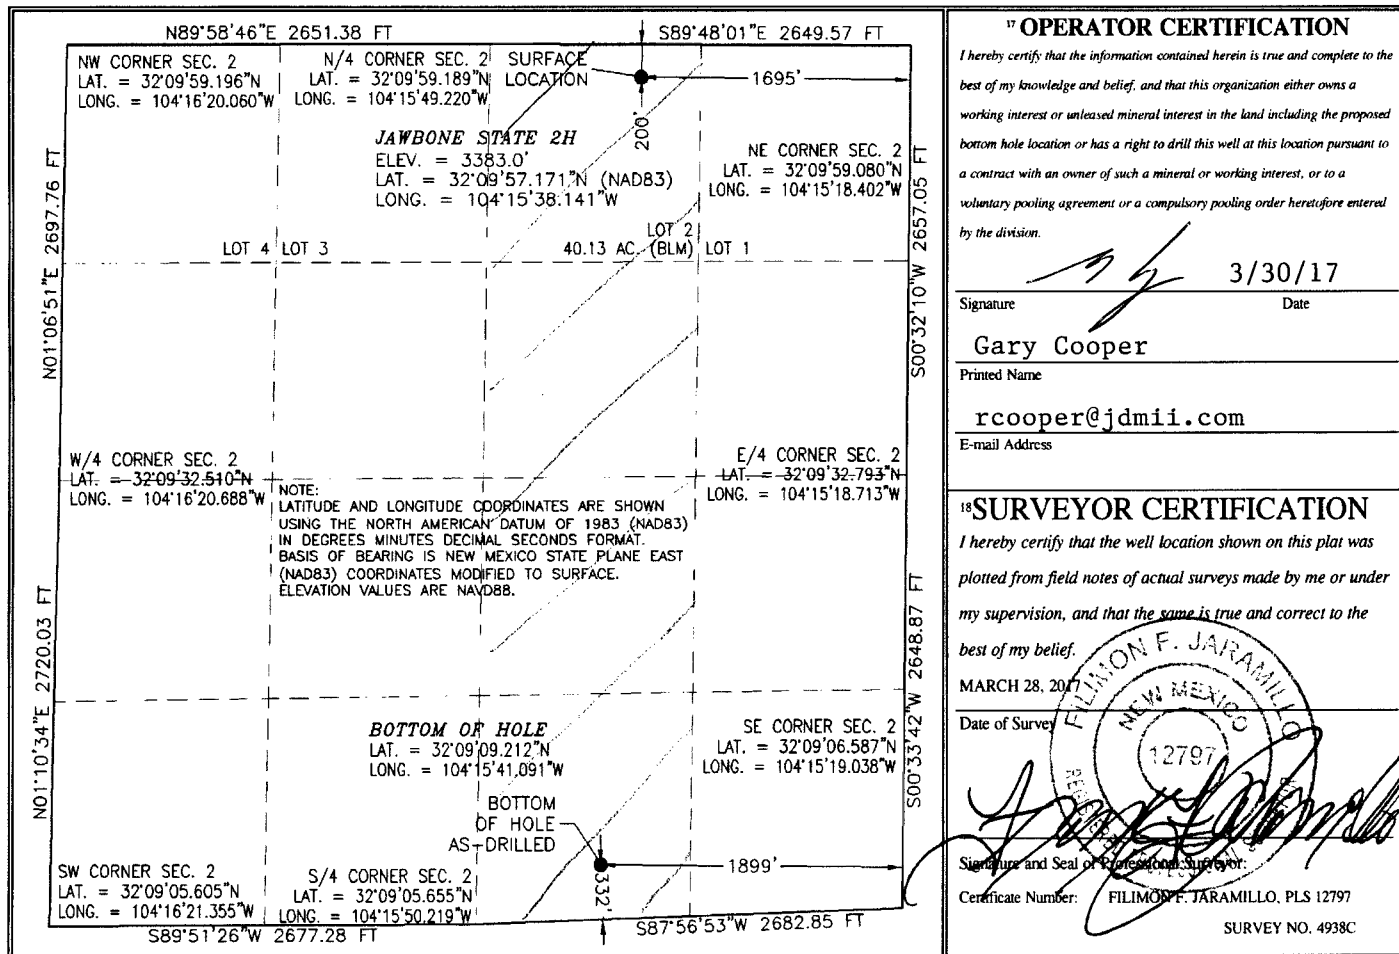 N89°58'46"E 2651.38 FT
S89°48'01"E 2649.57 FT
NW CORNER SEC. 2
LAT. = 32°09'59.196"N
LONG. = 104°16'20.060"W
N/4 CORNER SEC. 2
LAT. = 32°09'59.189"N
LONG. = 104°15'49.220"W
SURFACE
LOCATION
1695'
200'
JAWBONE STATE 2H
ELEV. = 3383.0'
LAT. = 32°09'57.171"N (NAD83)
LONG. = 104°15'38.141"W
NE CORNER SEC. 2
LAT. = 32°09'59.080"N
LONG. = 104°15'18.402"W
N01°06'51"E 2697.76 FT
S00°32'10"W 2657.05 FT
LOT 4
LOT 3
LOT 2
40.13 AC. (BLM)
LOT 1
W/4 CORNER SEC. 2
LAT. = 32°09'32.510"N
LONG. = 104°16'20.688"W
E/4 CORNER SEC. 2
LAT. = 32°09'32.793"N
LONG. = 104°15'18.713"W
NOTE:
LATITUDE AND LONGITUDE COORDINATES ARE SHOWN
USING THE NORTH AMERICAN DATUM OF 1983 (NAD83)
IN DEGREES MINUTES DECIMAL SECONDS FORMAT.
BASIS OF BEARING IS NEW MEXICO STATE PLANE EAST
(NAD83) COORDINATES MODIFIED TO SURFACE.
ELEVATION VALUES ARE NAVD88.
N01°10'34"E 2720.03 FT
S00°33'42"W 2648.87 FT
BOTTOM OF HOLE
LAT. = 32°09'09.212"N
LONG. = 104°15'41.091"W
SE CORNER SEC. 2
LAT. = 32°09'06.587"N
LONG. = 104°15'19.038"W
BOTTOM
OF HOLE
AS-DRILLED
1899'
332'
SW CORNER SEC. 2
LAT. = 32°09'05.605"N
LONG. = 104°16'21.355"W
S/4 CORNER SEC. 2
LAT. = 32°09'05.655"N
LONG. = 104°15'50.219"W
S89°51'26"W 2677.28 FT
S87°56'53"W 2682.85 FT
17 OPERATOR CERTIFICATION
I hereby certify that the information contained herein is true and complete to the
best of my knowledge and belief, and that this organization either owns a
working interest or unleased mineral interest in the land including the proposed
bottom hole location or has a right to drill this well at this location pursuant to
a contract with an owner of such a mineral or working interest, or to a
voluntary pooling agreement or a compulsory pooling order heretofore entered
by the division.
3/30/17
Signature Date
Gary Cooper
Printed Name
rcooper@jdmii.com
E-mail Address
18 SURVEYOR CERTIFICATION
I hereby certify that the well location shown on this plat was
plotted from field notes of actual surveys made by me or under
my supervision, and that the same is true and correct to the
best of my belief.
MARCH 28, 2017
Date of Survey
FILIMON F. JARAMILLO
NEW MEXICO
12797
Signature and Seal of Professional Surveyor:
Certificate Number: FILIMON F. JARAMILLO, PLS 12797
SURVEY NO. 4938C